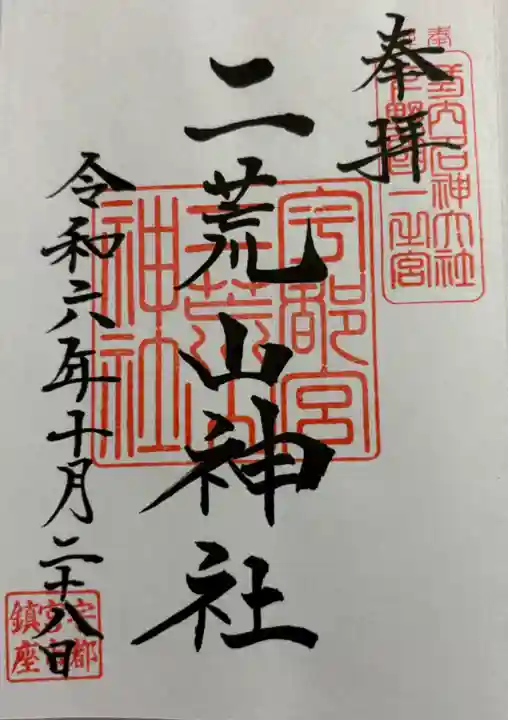 奉拝
式内名神大社
下野國一之宮
二荒山神社
宇都宮
二荒山
神社
令和六年十月二十八日
宇都
宮市
鎮座